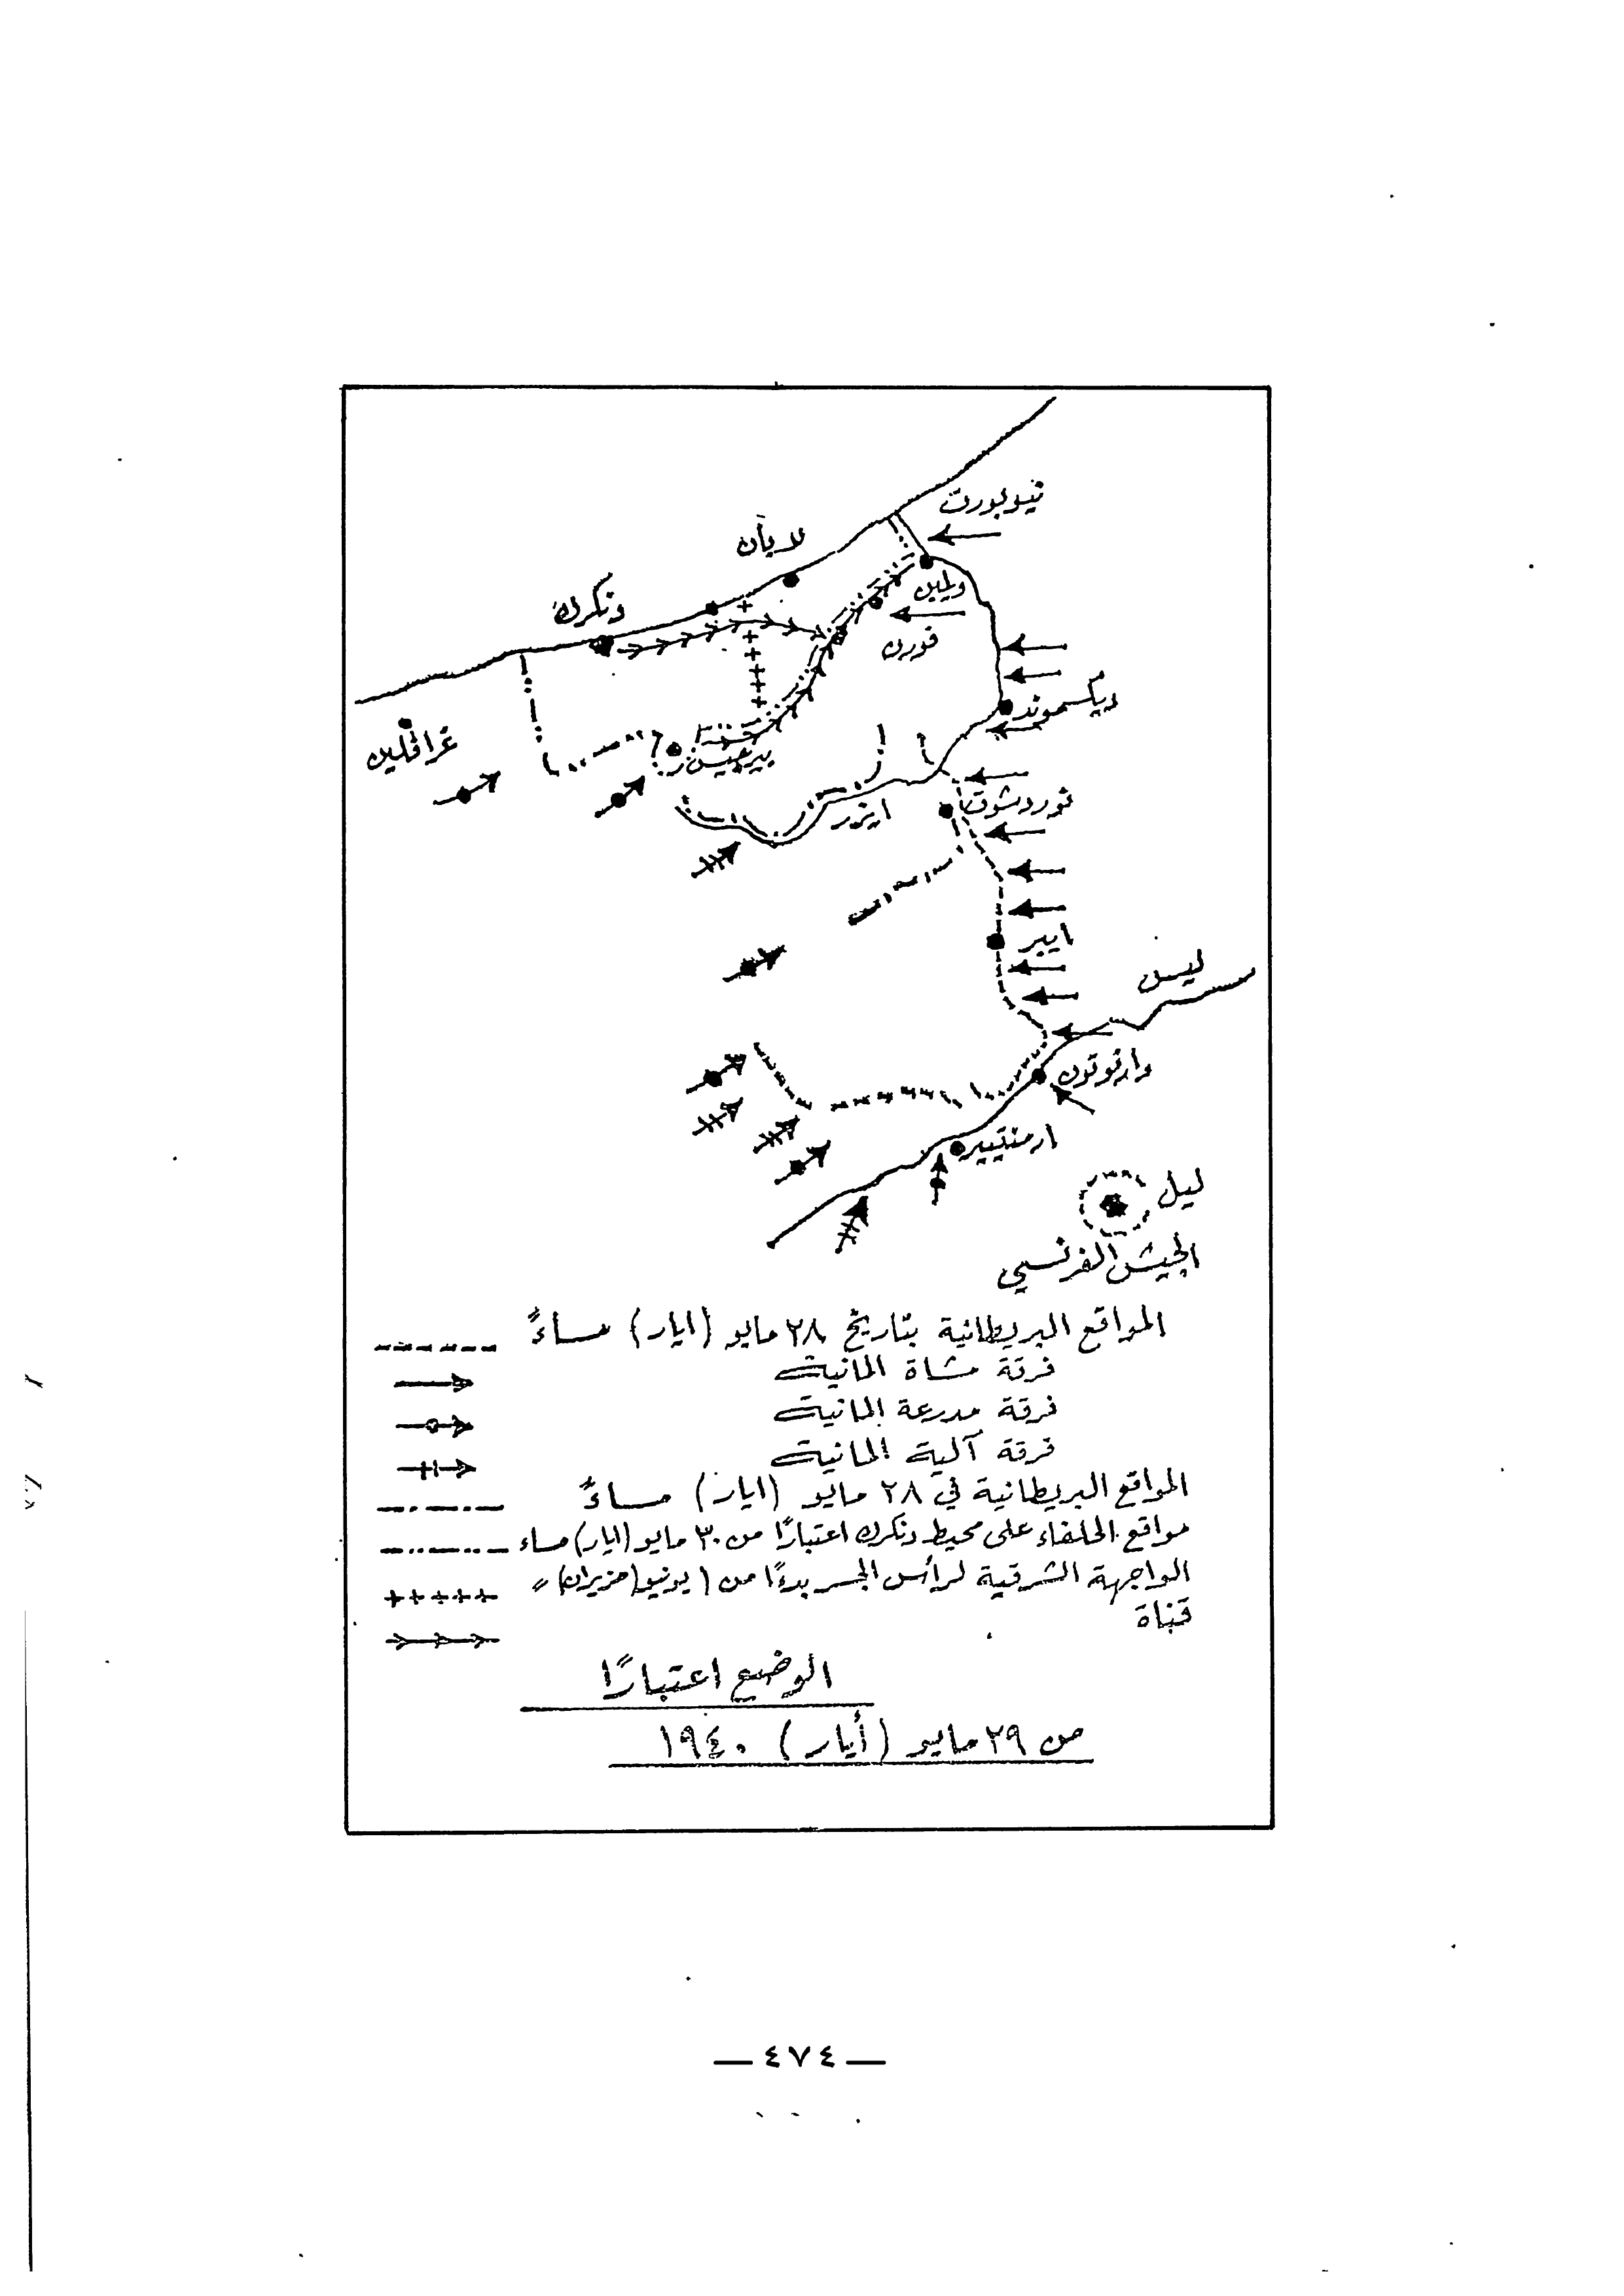 نيوبورت
لابان
ولمين
دنكرك
فورن
ديكسموند
غرافلين
بيرجيس
نوردشوت
ايزر
ايبر
ليس
وارنوتون
ارمنتيير
ليل
الجيش الفرنسي
المواقع البريطانية بتاريخ ٢٨ مايو (ايار) مساءً
فرقة مشاة المانية
فرقة مدرعة المانية
فرقة آلية المانية
المواقع البريطانية في ٢٨ مايو (ايار) مساءً
مواقع الحلفاء على محيط دنكرك اعتبارًا من ٣٠ مايو (ايار) مساء
الواجهة الشرقية لرأس الجسر بدءًا من ١ يونيو (حزيران) "
قناة
الوضع اعتبارًا
من ٢٩ مايو (أيار) ١٩٤٠
— ٤٧٤ —